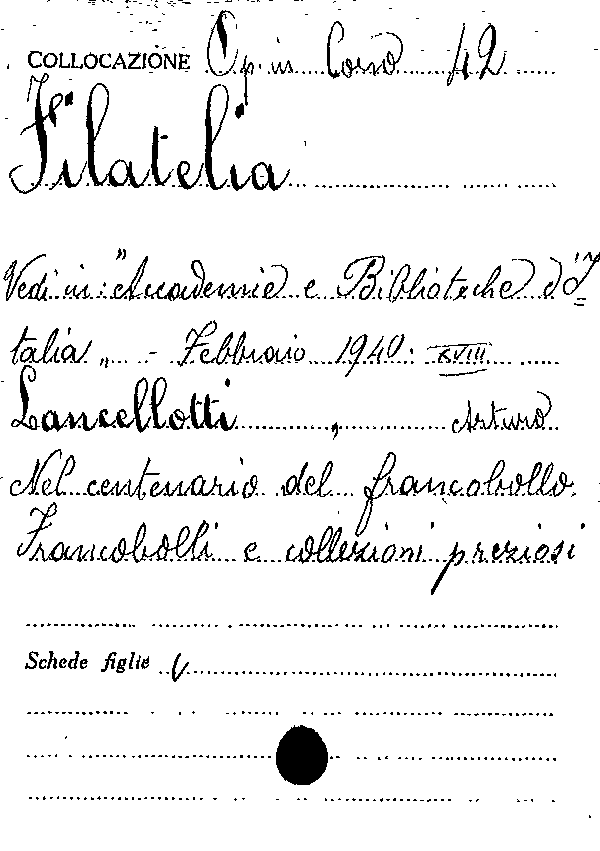 COLLOCAZIONE Op. in Corso 42
Filatelia
Vedi in: "Accademie e Biblioteche d'I
talia" - Febbraio 1940: XVIII
Lancellotti, Arturo
Nel centenario del francobollo.
Francobolli e collezioni preziosi
Schede figlie